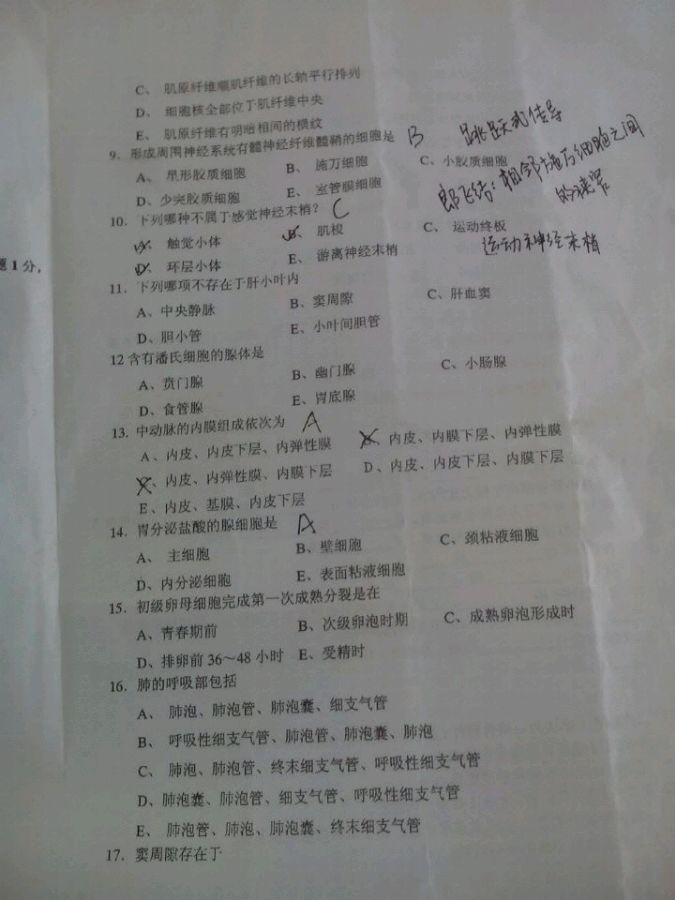 C、 肌原纤维顺肌纤维的长轴平行排列
D、 细胞核全部位于肌纤维中央
E、 肌原纤维有明暗相间的横纹
9. 形成周围神经系统有髓神经纤维髓鞘的细胞是 B 跳跃式传导
A、 星形胶质细胞 B、 施万细胞 C、小胶质细胞
D、少突胶质细胞 E、 室管膜细胞
郎飞结：相邻施万细胞之间
的狭窄
10. 下列哪种不属于感觉神经末梢？ C
A、 触觉小体 B、 肌梭 C、 运动终板
运动神经末梢
D、 环层小体 E、 游离神经末梢
题 1 分，
11. 下列哪项不存在于肝小叶内
A、中央静脉 B、窦周隙 C、肝血窦
D、胆小管 E、小叶间胆管
12 含有潘氏细胞的腺体是
A、贲门腺 B、幽门腺 C、小肠腺
D、食管腺 E、胃底腺
13. 中动脉的内膜组成依次为 A
A、内皮、内皮下层、内弹性膜 B、内皮、内膜下层、内弹性膜
C、内皮、内弹性膜、内膜下层 D、内皮、内皮下层、内膜下层
E、内皮、基膜、内皮下层
14. 胃分泌盐酸的腺细胞是 A
A、 主细胞 B、壁细胞 C、颈粘液细胞
D、内分泌细胞 E、表面粘液细胞
15. 初级卵母细胞完成第一次成熟分裂是在
A、青春期前 B、次级卵泡时期 C、成熟卵泡形成时
D、排卵前 36～48 小时 E、受精时
16. 肺的呼吸部包括
A、 肺泡、肺泡管、肺泡囊、细支气管
B、 呼吸性细支气管、肺泡管、肺泡囊、肺泡
C、 肺泡、肺泡管、终末细支气管、呼吸性细支气管
D、肺泡囊、肺泡管、细支气管、呼吸性细支气管
E、 肺泡管、肺泡、肺泡囊、终末细支气管
17. 窦周隙存在于